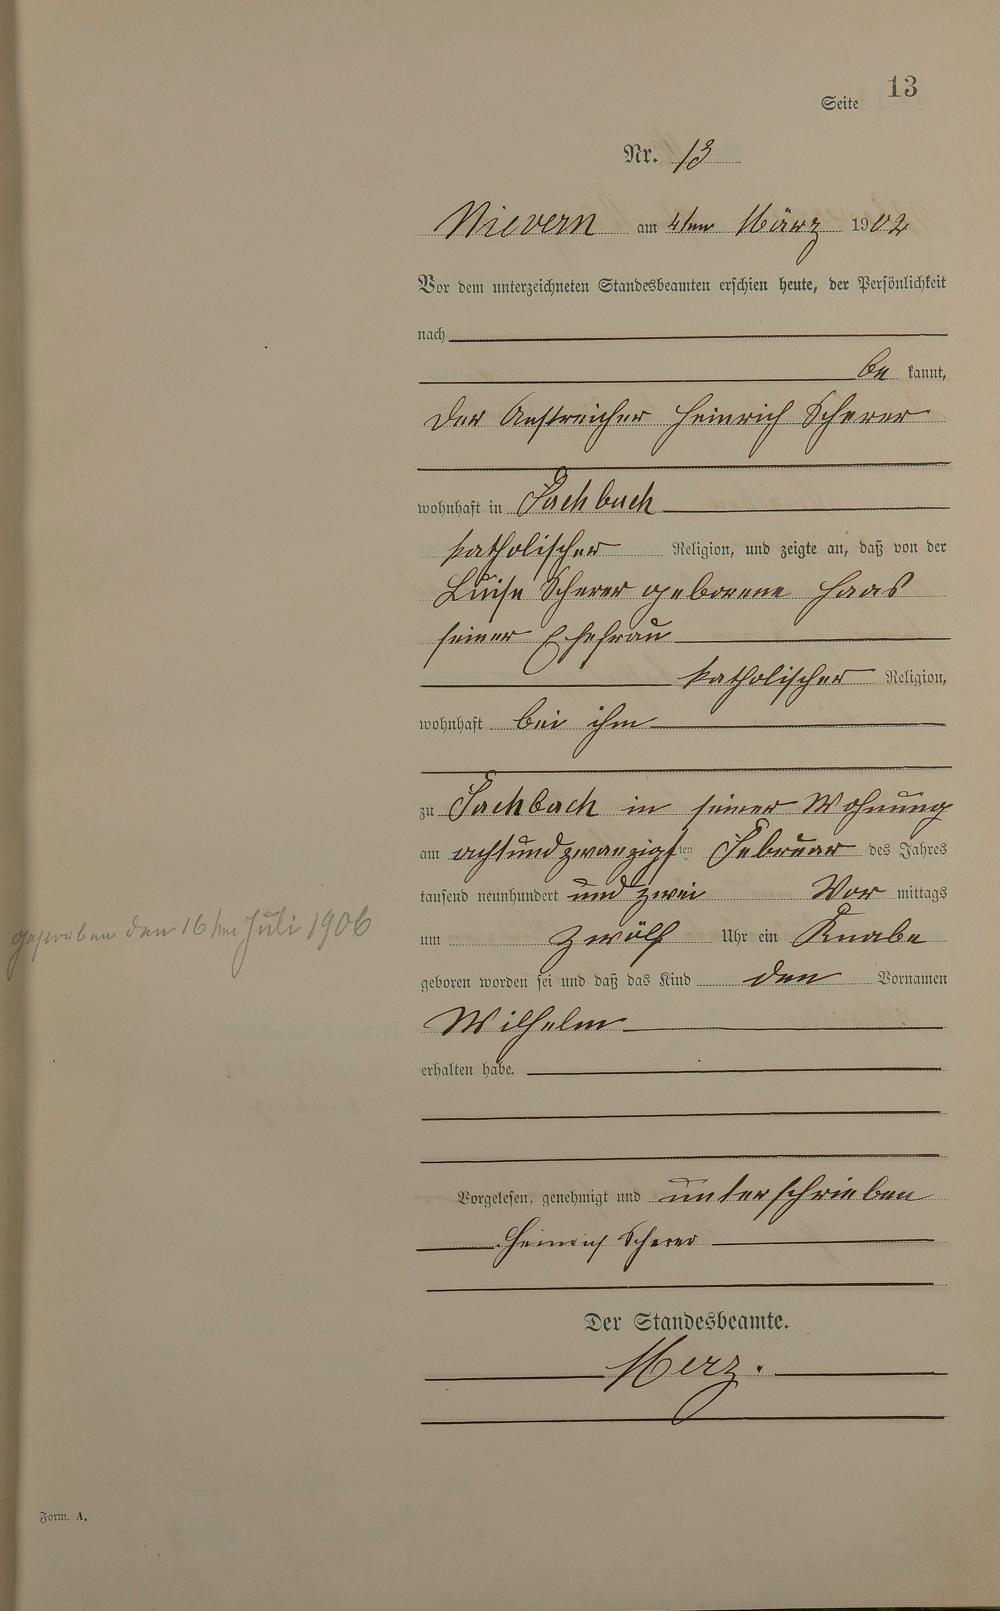 Seite 13
Nr. 13
Nievern am 4ten März 1902
Vor dem unterzeichneten Standesbeamten erschien heute, der Persönlichkeit
nach
be kannt,
der Anstreicher Heinrich Scherer
wohnhaft in Fachbach
katholischer Religion, und zeigte an, daß von der
Luise Scherer geborene Haas
seiner Ehefrau
katholischer Religion,
wohnhaft bei ihm
zu Fachbach in seiner Wohnung
am achtundzwanzigsten Februar des Jahres
tausend neunhundert und zwei Vor mittags
um zwölf Uhr ein Knabe
geboren worden sei und daß das Kind den Vornamen
Wilhelm
erhalten habe.
Vorgelesen, genehmigt und unterschrieben
Heinrich Scherer
Der Standesbeamte.
Merz.
gestorben den 16ten Juli 1906
Form. A.